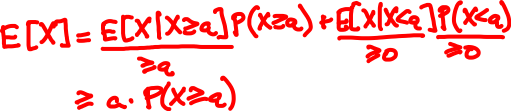 E[X] = E[X|X≥a] P(X≥a) + E[X|X<a] P(X<a)
≥a ≥0 ≥0
≥ a · P(X≥a)